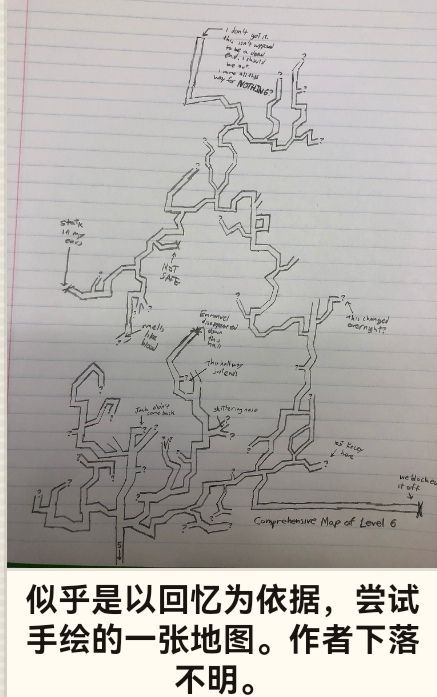 I don't get it.
this isn't supposed
to be a dead
end. I should
be out
I came all this
way for NOTHING?
?
?
?
?
?
Static
in my
ears
NOT
SAFE
smells
like
blood
Emmanuel
disappeared
down
this
hall
this changed
overnight?
This hallway
Jack didn't
come back
skittering noise
here
we blocked
it off
Comprehensive Map of Level 6
S
似乎是以回忆为依据，尝试
手绘的一张地图。作者下落
不明。